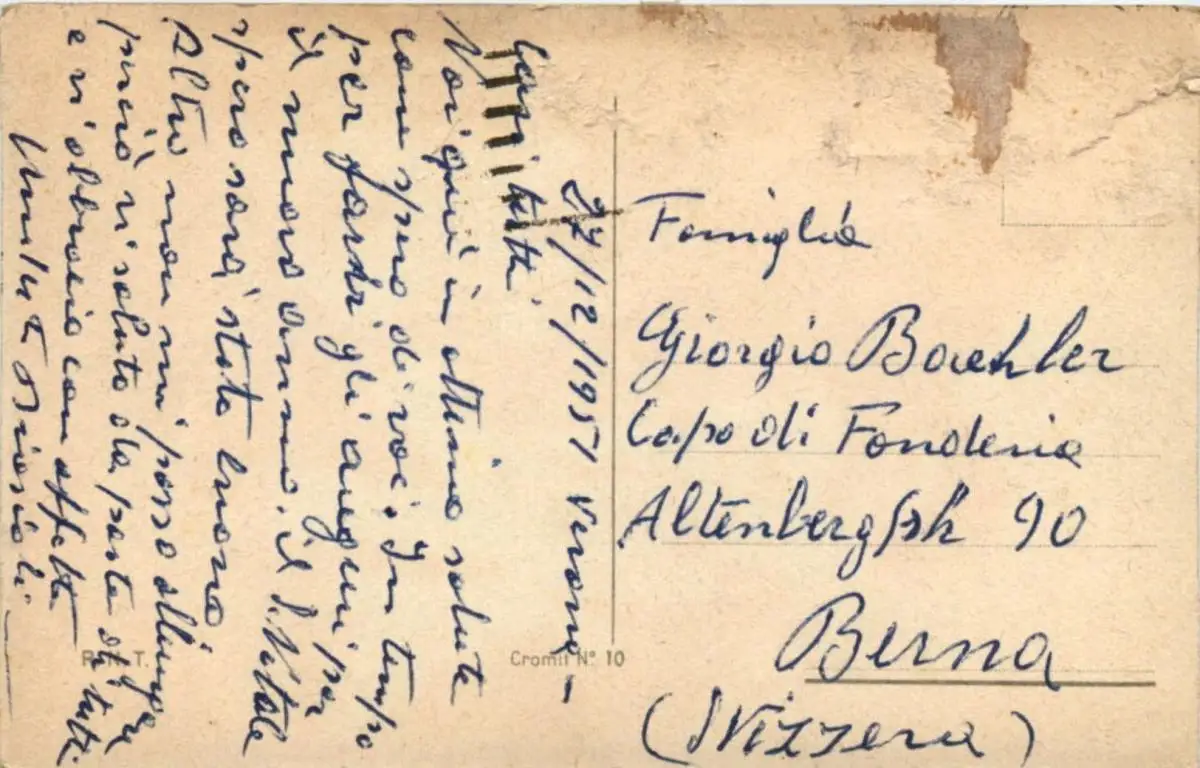 27/12/1951 Verona -
Cari tutti
Noi quì in ottima salute
come spero di voi. In tempo
per farvi gli auguri per
il nuovo anno, il S. Natale
spero sarà stato buono
Altro non mi posso allungare
perciò vi saluto da parte di tutti
e vi abbraccio con affetto
Famiglia
Giorgio Boehler
Capo di Fonderia
Altenbergstr 90
Berna
(Svizzera)
Cromit N° 10